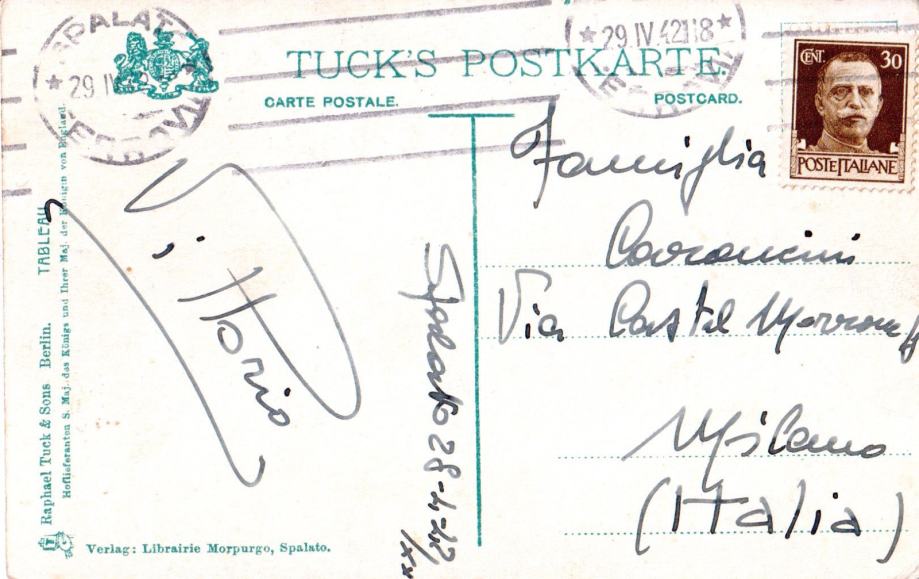 SPALATO
29 IV
FERROVIA
29 IV 42 18
TUCK'S POSTKARTE.
CARTE POSTALE.
POSTCARD.
CENT. 30
POSTE ITALIANE
Famiglia
Via Castel
Milano
(Italia)
Vittorio
Spalato 28-4-42
TABLEAU
Raphael Tuck & Sons Berlin.
Hoflieferanten S. Maj. des Königs und Ihrer Maj. der Königin von England.
Verlag: Librairie Morpurgo, Spalato.